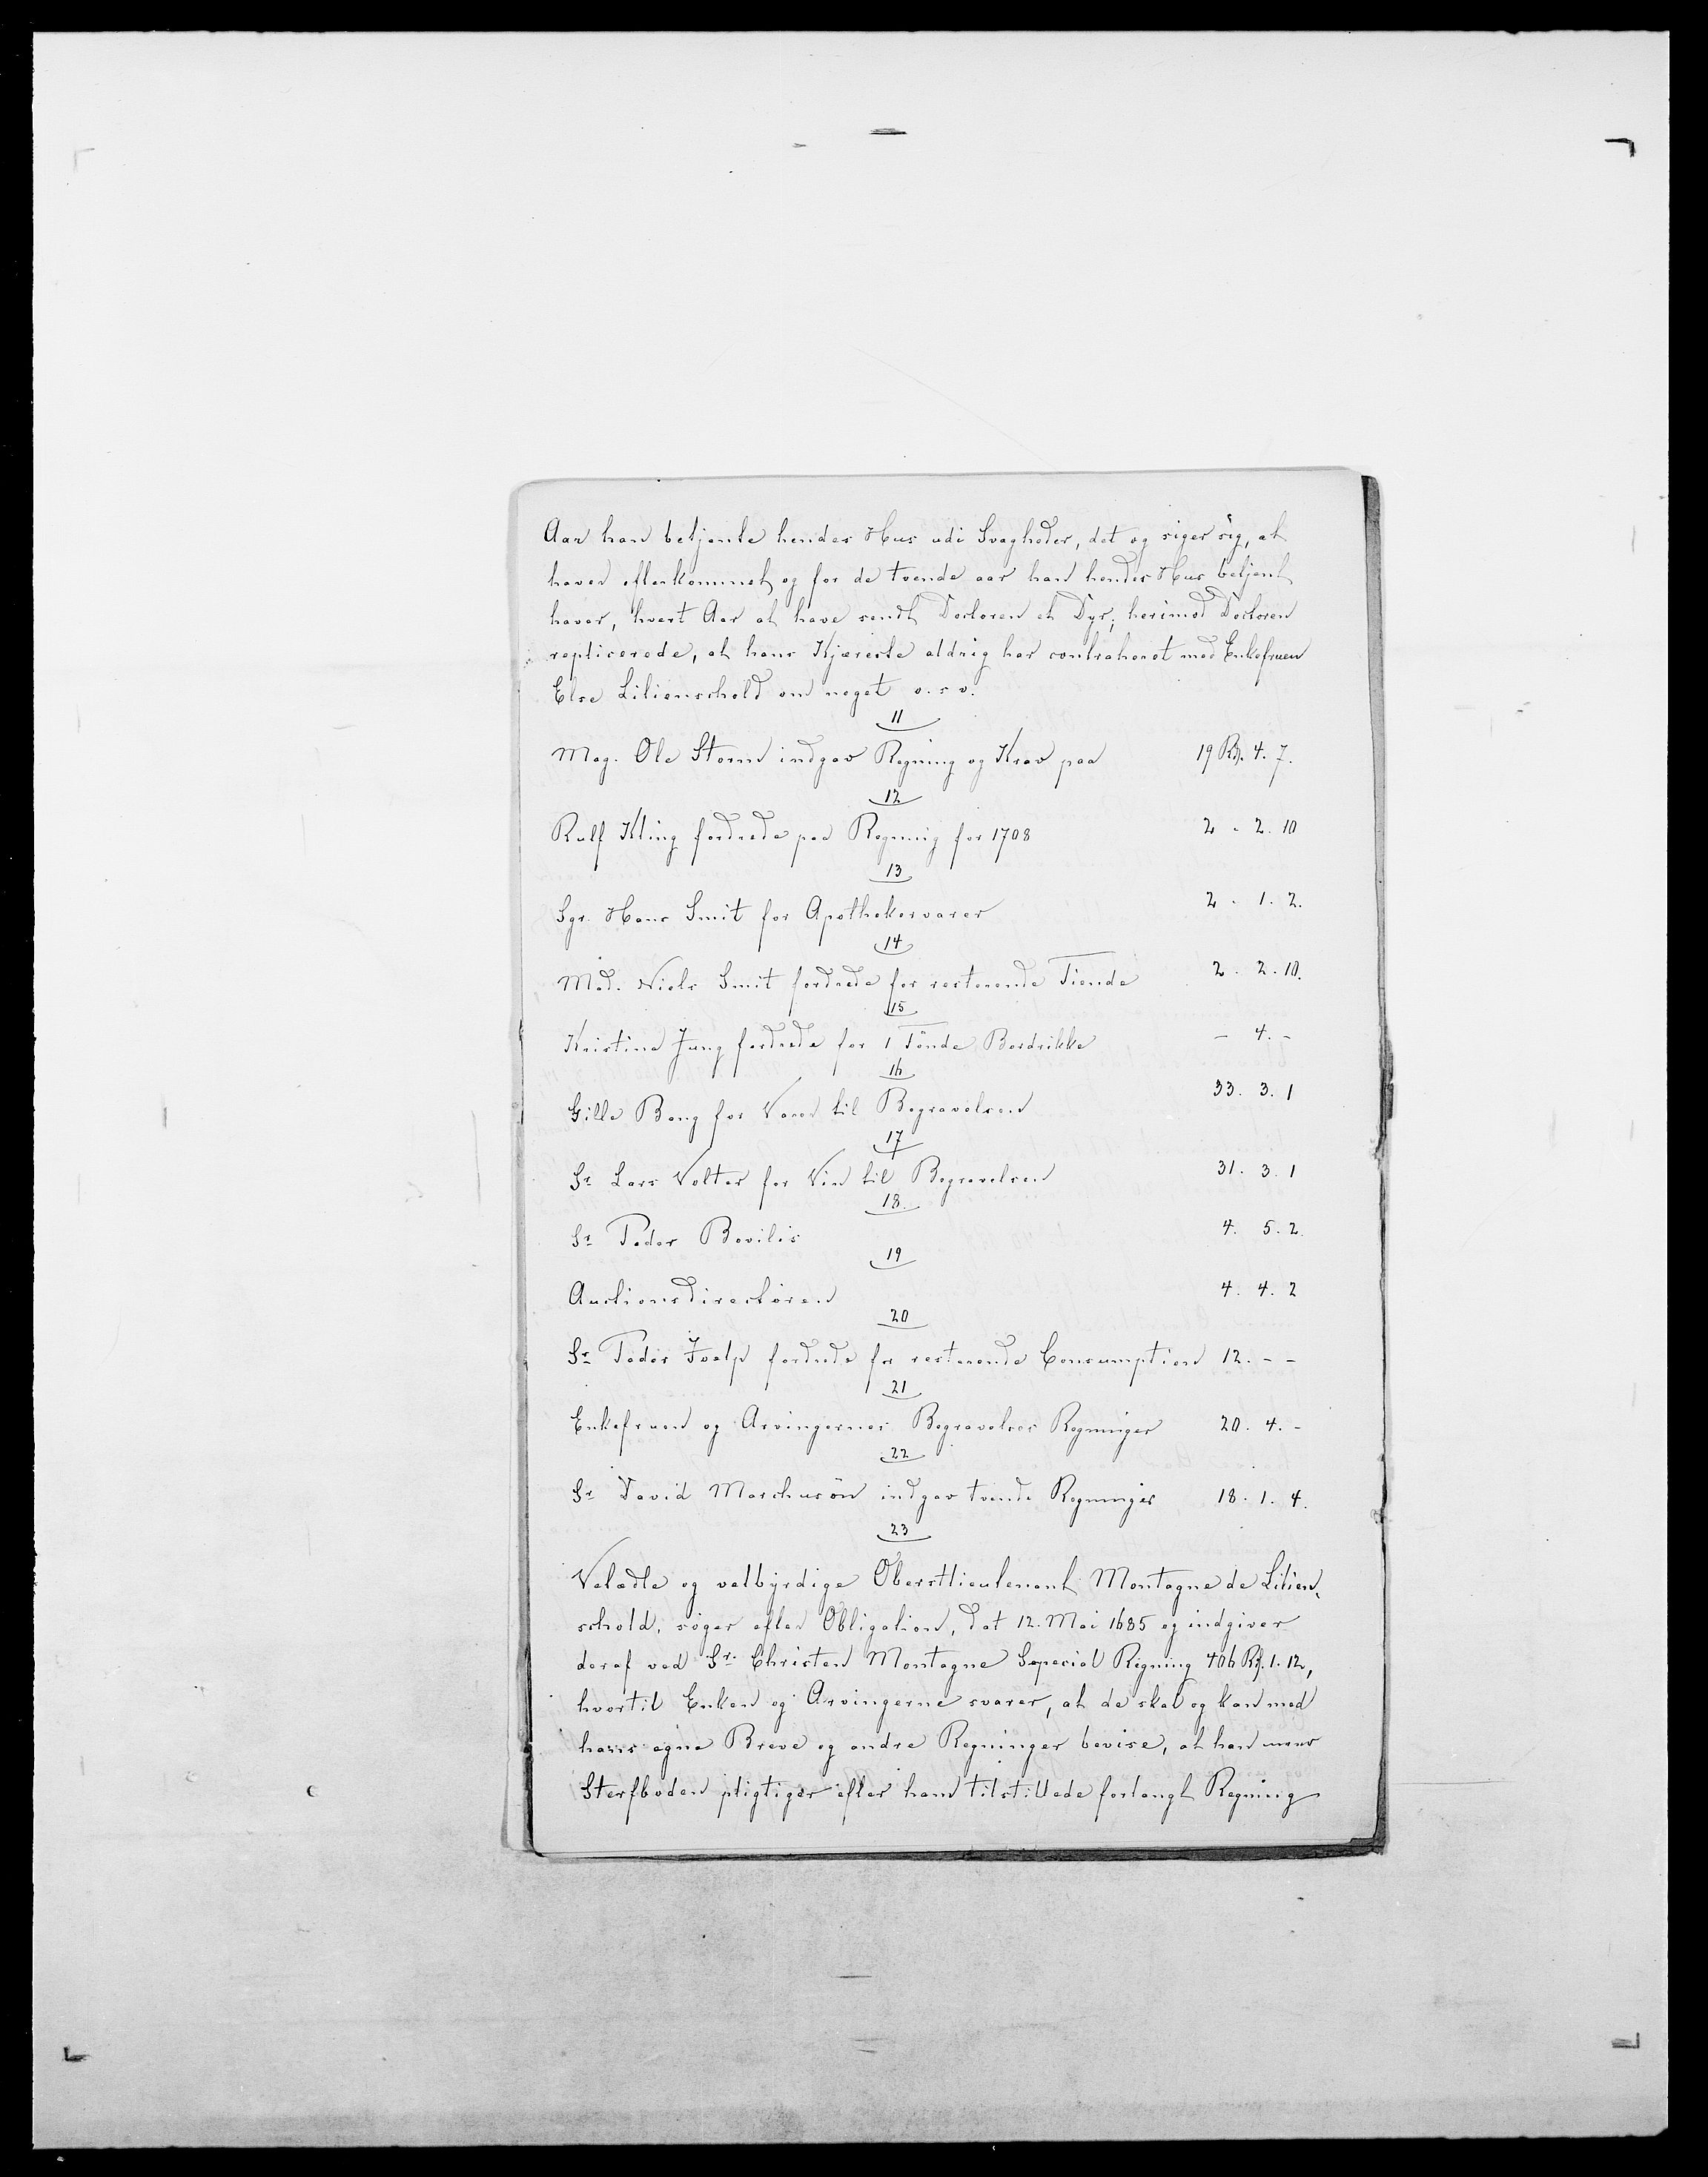 Aar han betjente hendes Hus udi Svagheder, det og siger sig, at
haver efterkommet og for de tvende aar han hendes Hus betjent
haver, hvert Aar at have sendt Doctoren et Dyr; herimod Doctoren
replicerede, at hans Kjæreste aldrig har contraheret med Enkefruen
Else Lilienschold om noget o. s. v.
11
Mag. Ole Storm indgav Regning og Krav paa 19 Rd. 4. 7.
12
Rulf Kling fordrede paa Regning for 1708 2 . 2. 10
13
Sgr. Hans Smit for Apothekervarer 2 . 1. 2.
14
Mad. Niels Smit fordrede for resterende Tiende 2 . 2. 10.
15
Kristine Jung fordrede for 1 Tönde Bordrikke – 4. –
16
Gille Bang for Varer til Begravelsen 33. 3. 1
17
Sr. Lars Volter for Vin til Begravelsen 31. 3. 1
18.
Sr. Peder Bovilis 4. 5. 2.
19
Auctionsdirectøren 4. 4. 2
20
Sr. Peder fordrede for resterende Consumption 12. – –
21
Enkefruen og Arvingernes Begravelses Regninger 20. 4. –
22
Sr. David Marchusön indgav tvende Regninger 18. 1. 4.
23
Velædle og velbyrdige Oberstlieutenant Montagne de Lilien-
schold, søger efter Obligation, dat 12. Mai 1685 og indgiver
deraf ved Sr. Christen Montagne Sepecial Regning 406 Rd. 1. 12,
hvortil Enken og Arvingerne svarer, at de skal og kan med
hans egne Breve og andre Regninger bevise, at han
Sterfboden pligtiger efter ham tilstillede forlangt Regning